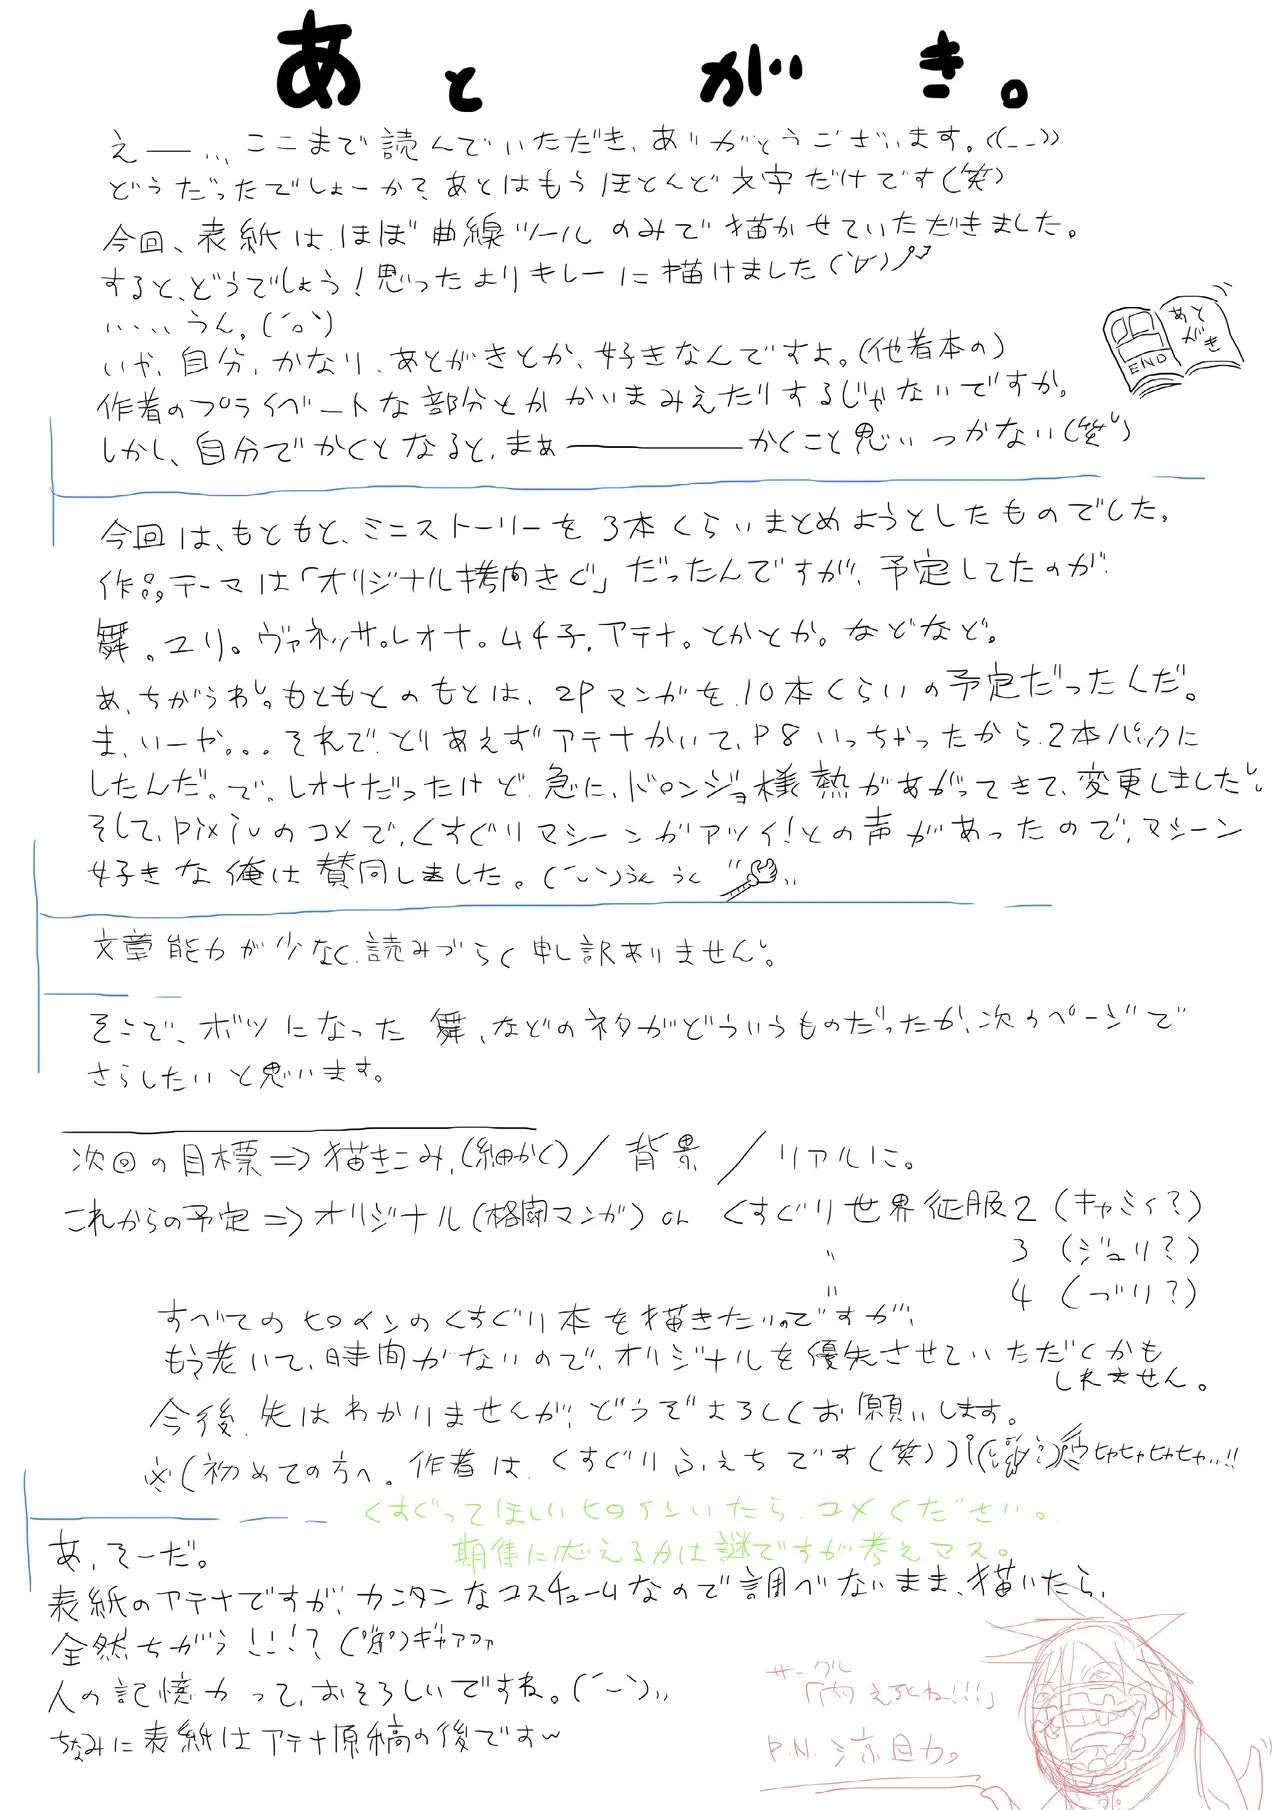 あとがき。
えー…、ここまで読んでいただき、ありがとうございます。((_ _))
どうだったでしょーか?あとはもうほとんど文字だけです(笑)
今回、表紙は、ほぼ曲線ツールのみで描かせていただきました。
すると、どうでしょう!思ったよりキレーに描けました(´∀`)ノ
、、、、うん。(´o`)
いや、自分、かなり、あとがきとか、好きなんですよ。(他者本の)
作者のプライベートな部分とかかいまみえたりするじゃないですか。
しかし、自分でかくとなると、まぁ―――かくこと思いつかない(笑)
あとがき
END
今回は、もともと、ミニストーリーを3本くらいまとめようとしたものでした。
作品テーマは「オリジナル拷問きぐ」だったんですが、予定してたのが
舞。ユリ。ヴァネッサ。レオナ。ムチ子。アテナ。とかとか。などなど。
あ、ちがうわ。もともとのもとは、2Pマンガを、10本くらいの予定だったんだ。
ま、いーや。。。それで、とりあえずアテナかいて、P8いっちゃったから、2本パックに
したんだ。で。レオナだったけど、急に、ドロンジョ様熱があがってきて、変更しました。
そして、pixivのコメで、くすぐりマシーンがアツイ!との声があったので、マシーン
好きな俺は賛同しました。(´ー`)うんうん
文章能力が少なく、読みづらく申し訳ありません。
そこで、ボツになった舞、などのネタがどういうものだったか、次のページで
さらしたいと思います。
次回の目標⇒描きこみ,(細かく)/背景/リアルに。
これからの予定⇒オリジナル(格闘マンガ)or くすぐり世界征服2(キャミィ?)
〃 3(ジュリ?)
〃 4(づり?)
すべてのヒロインのくすぐり本を描きたいのですが、
もう老いて、時間がないので、オリジナルを優先させていただくかも
しれません。
今後、先はわかりませんが、どうぞよろしくお願いします。
※(初めての方へ。作者は、くすぐりふぇちです(笑))ヒャヒャヒャヒャ、、!!
くすぐってほしいヒロインいたら、コメください。
期待に応えるかは謎ですが考えマス。
あ、そーだ。
表紙のアテナですが、カンタンなコスチュームなので調べないまま、描いたら、
全然ちがう!!!?ギャアアァ
人の記憶力って、おそろしいですね。(´ー`)、、
ちなみに表紙はアテナ原稿の後です〜
サークル
P.N.